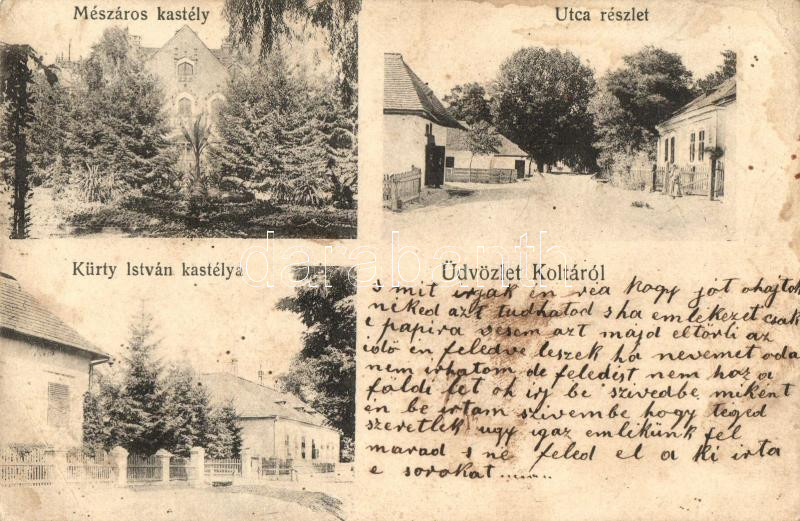 Mészáros kastély
Utca részlet
Kürty István kastélya
darabanth.com
Üdvözlet Koltáról
s mit irjak én réa hogy jót ohajtok
néked azt tudhatod s ha emlékezet csak
e papira vésem azt majd eltörli az
idö én feledve leszek ha nevemet oda
nem irhatom de feledést nem hoz a
földi lét oh irj be szivedbe miként
én be irtam szivembe hogy téged
szeretlek ugy igaz emlékünk fel
marad s ne feled el a ki irta
e sorokat......